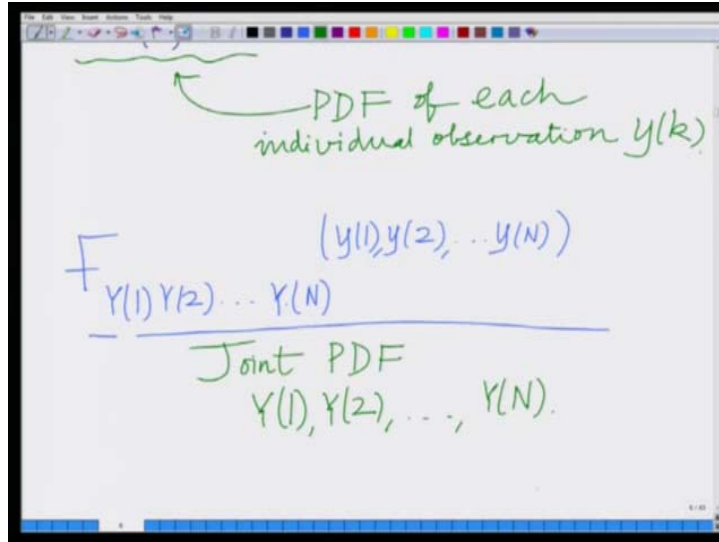 File Edit View Insert Actions Tools Help
PDF of each
individual observation y(k).
F Y(1) Y(2) ... Y(N) (y(1), y(2), ... y(N))
Joint PDF
Y(1), Y(2), ..., Y(N).
6